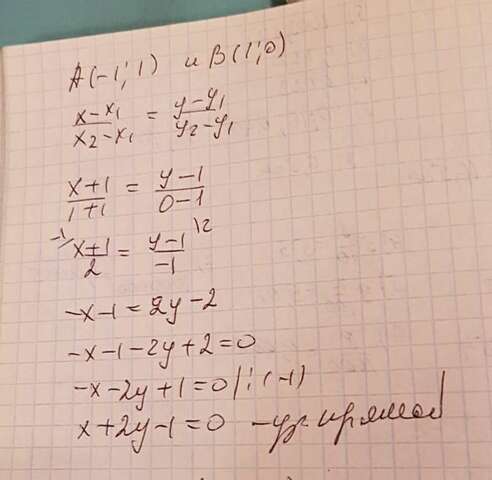 A(-1; 1) и B(1; 0)
x-x₁/x₂-x₁ = y-y₁/y₂-y₁
x+1/1+1 = y-1/0-1
-1/ x+1/2 = y-1/-1 \2
-x-1 = 2y-2
-x-1-2y+2=0
-x-2y+1=0 |:(-1)
x+2y-1=0 -ур. прямой